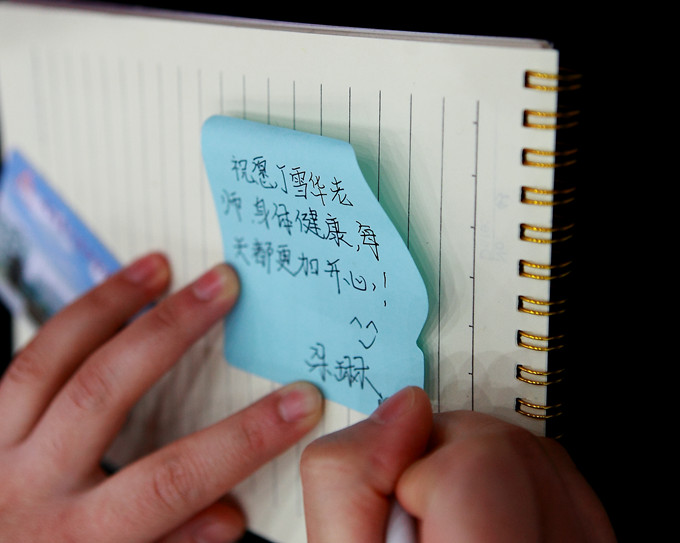 祝愿丁雪华老
师 身体健康,每
天都更加开心!
^^
梁琳